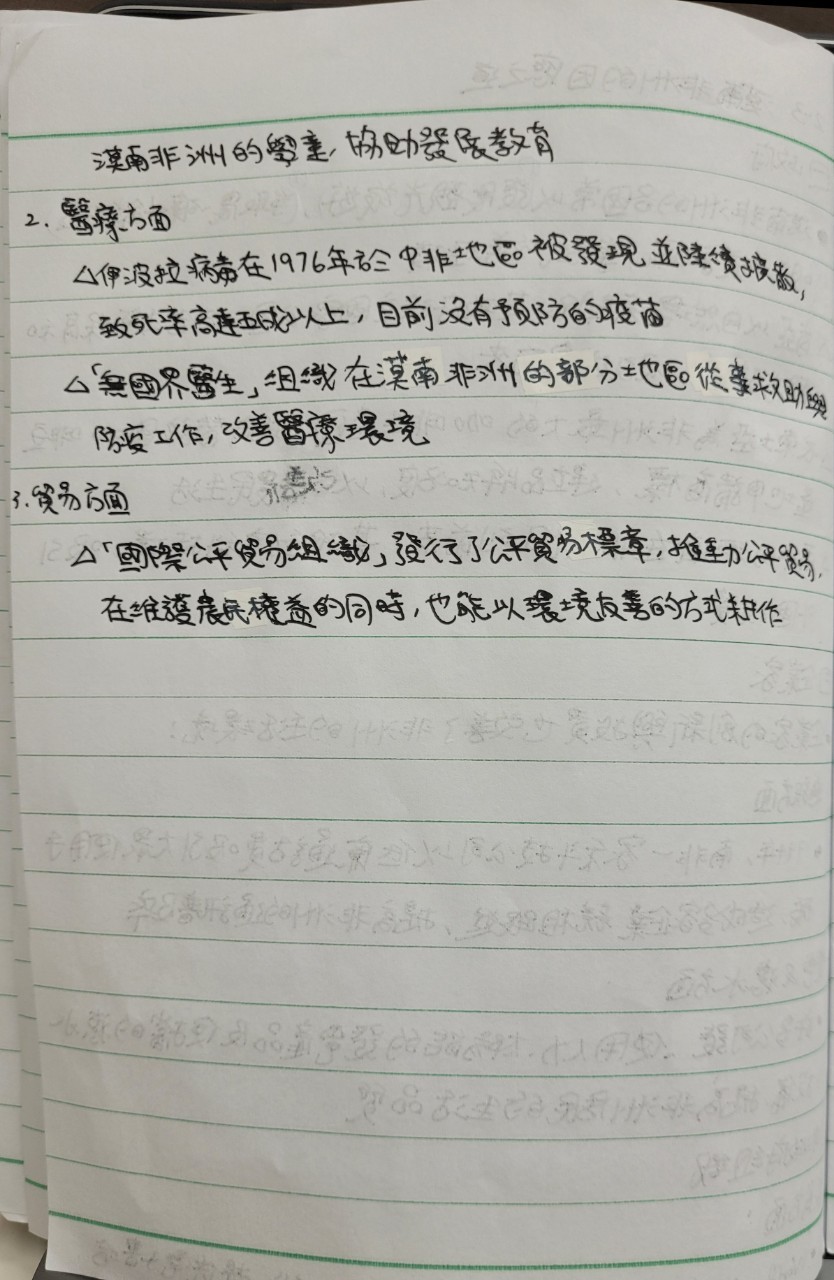 漠南非洲的學童,協助發展教育
2. 醫療方面
△伊波拉病毒在1976年於中非地區被發現並陸續擴散,
致死率高達五成以上,目前沒有預防的疫苗
△「無國界醫生」組織在漠南非洲的部分地區從事救助與
防疫工作,改善醫療環境
3. 貿易方面
△「國際公平貿易組織」發行了公平貿易標章,推動公平貿易,
在維護農民權益的同時,也能以環境友善的方式耕作